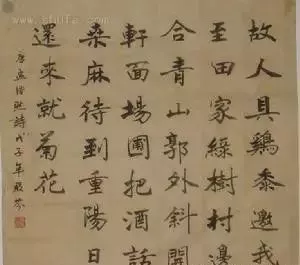 故人具鷄黍邀我
至田家綠樹村邊
合青山郭外斜開
軒面場圃把酒話
桑麻待到重陽日
還來就菊花
唐孟浩然詩戊子年